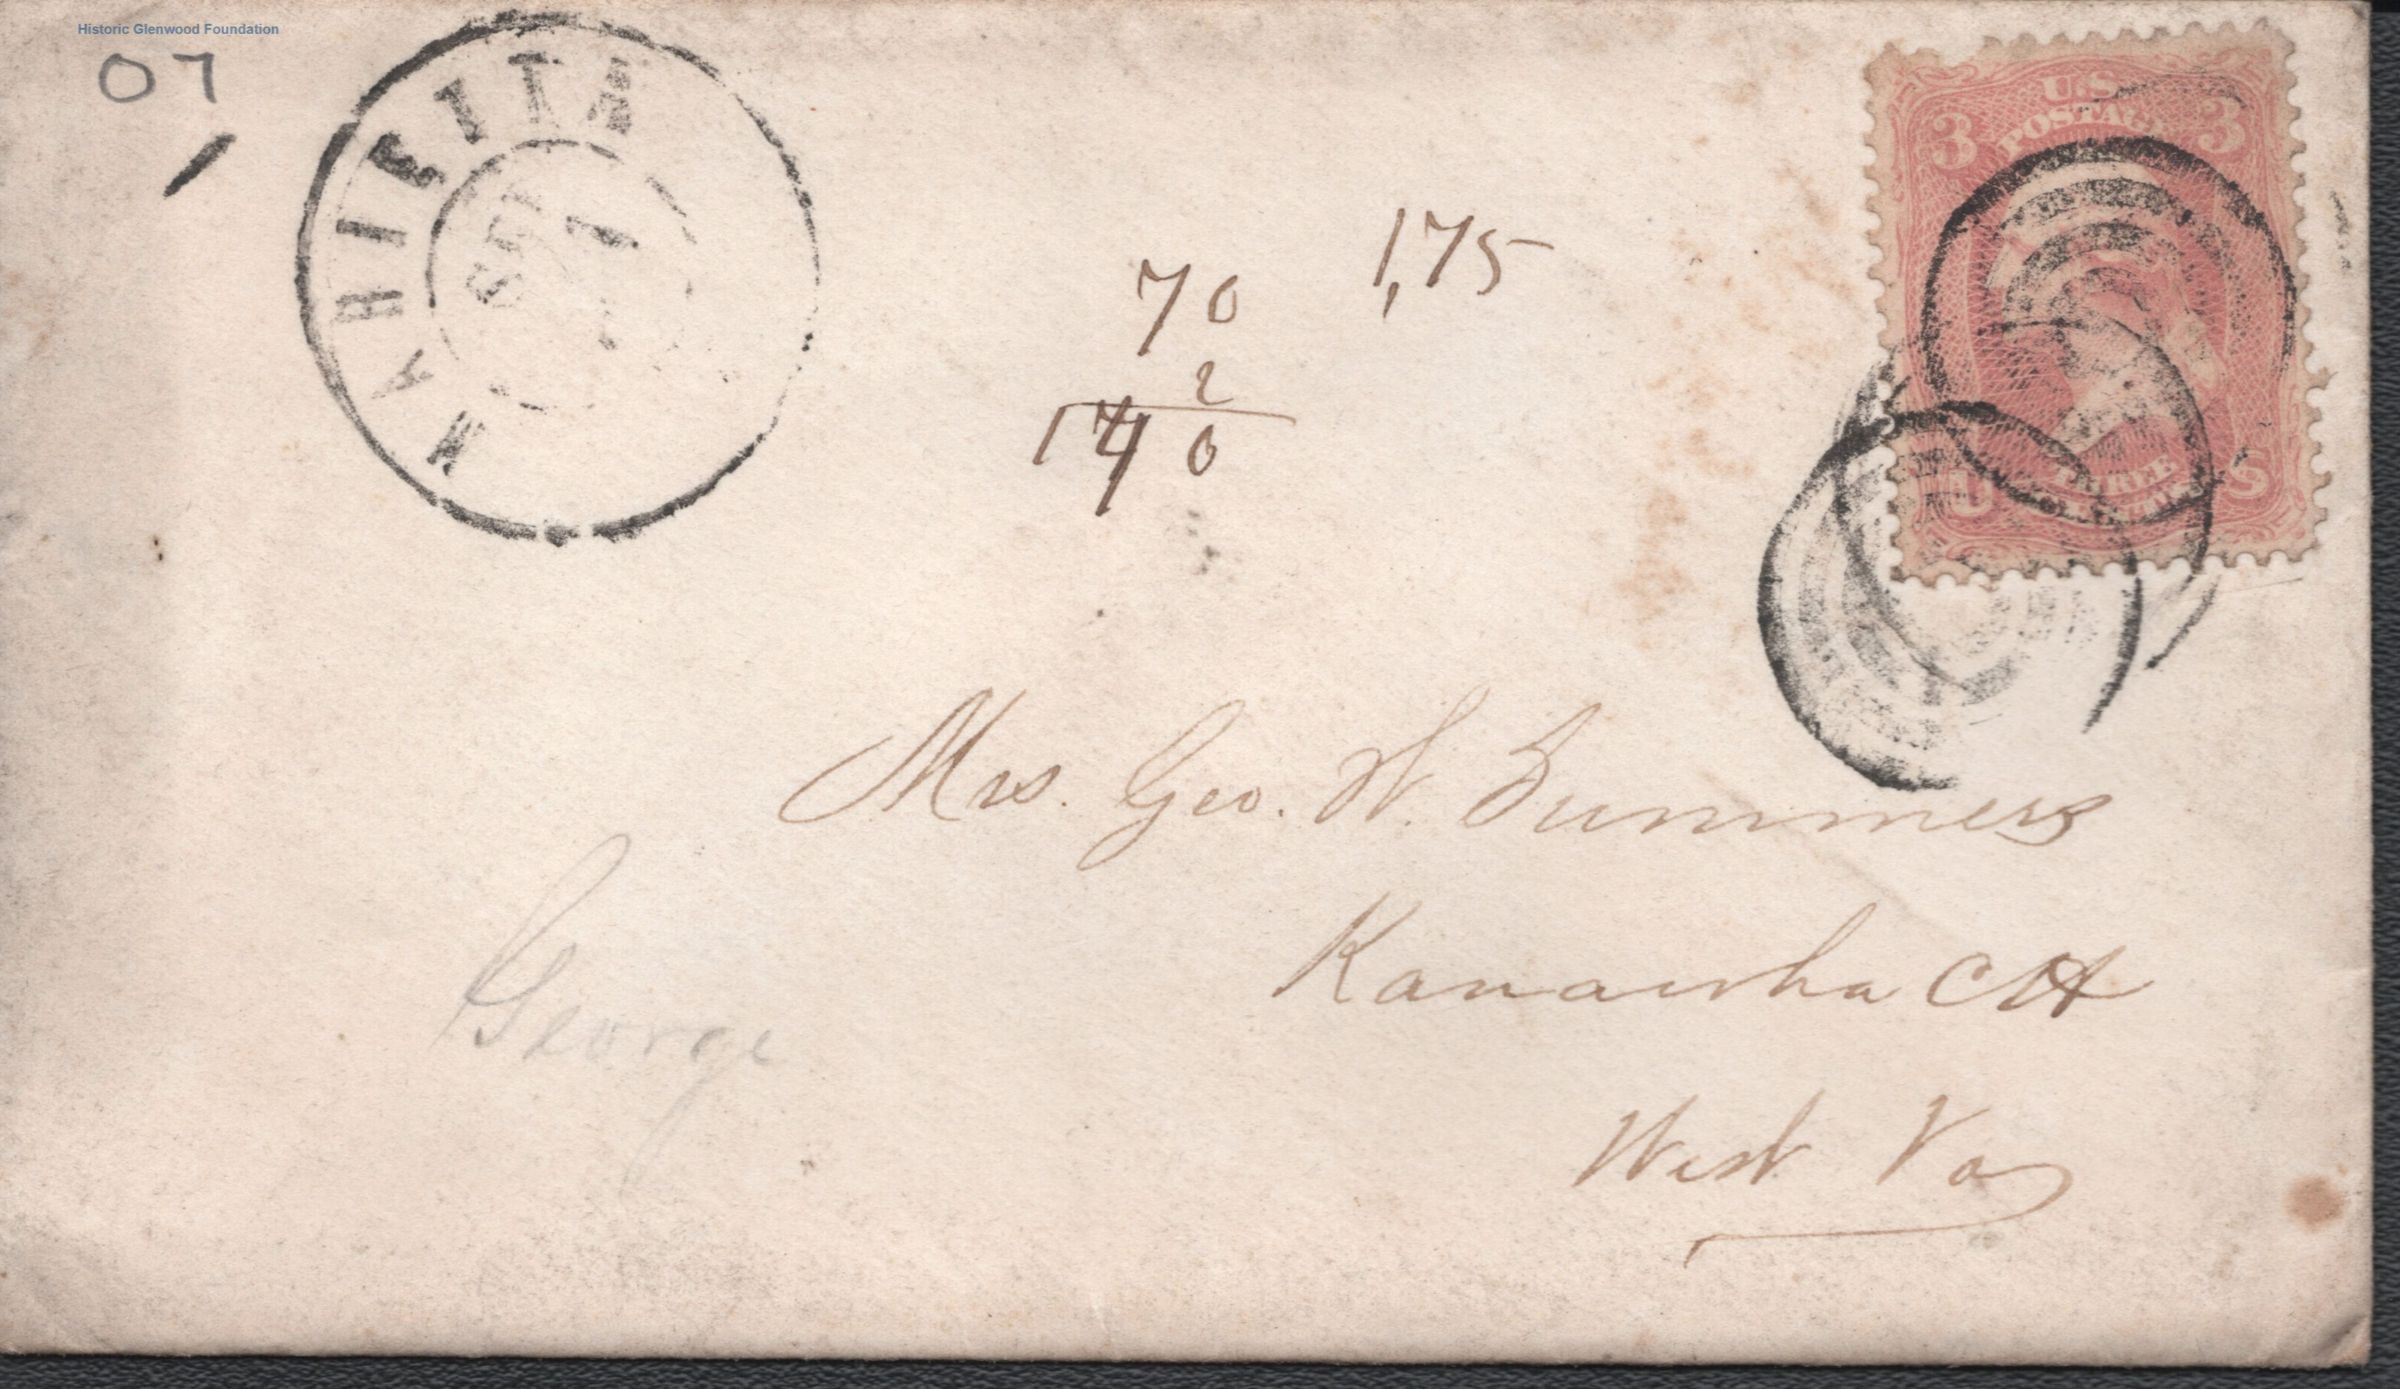 Historic Glenwood Foundation
07
MARIETTA
SEP
1
U.S.
POSTAGE
3 3
THREE
U S
1,75
70
2
140
Mrs. Geo. W. Summers
Kanawha CH
George
West Va